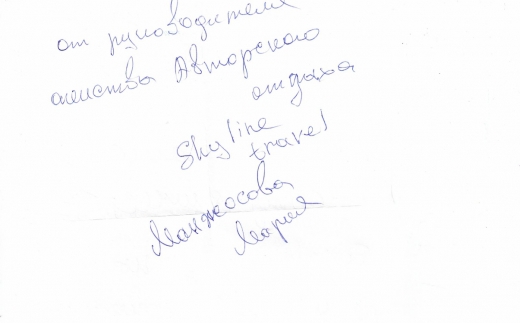 от руководителя
агентства Авторского
отдыха
Skyline
travel
Манжосова
Мария